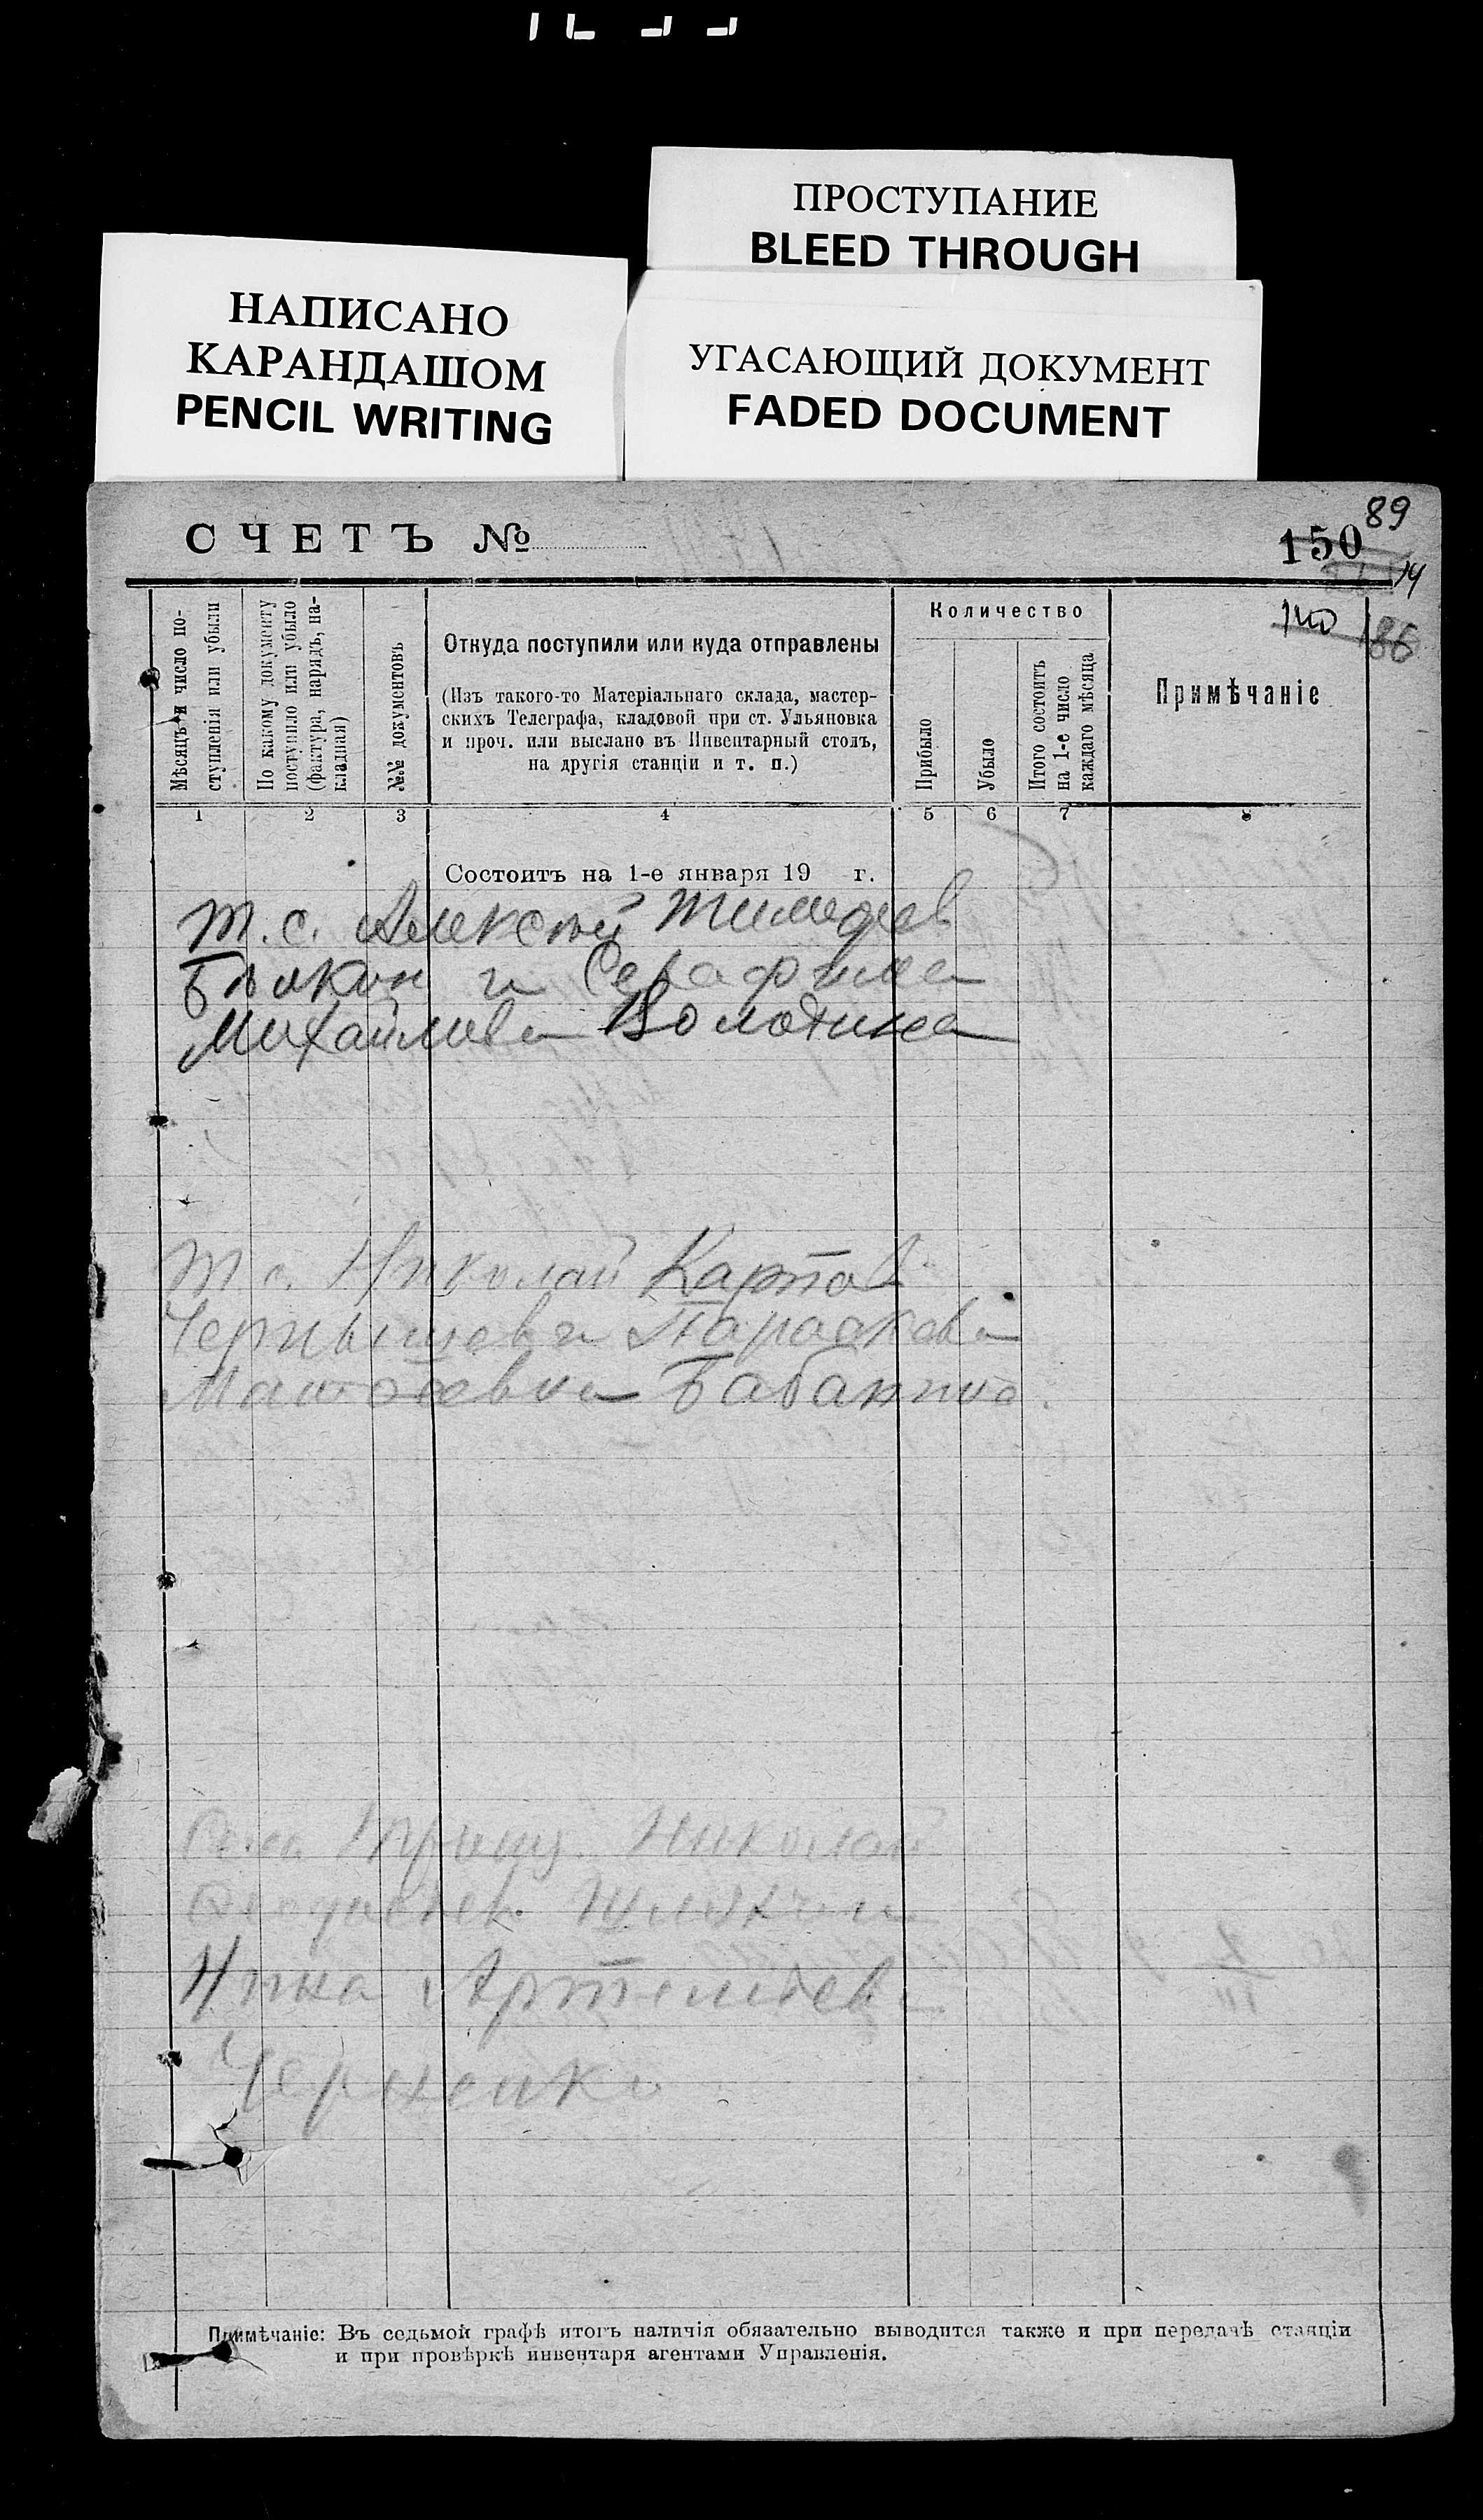 ПРОСТУПАНИЕ
BLEED THROUGH
НАПИСАНО
КАРАНДАШОМ
PENCIL WRITING
УГАСАЮЩИЙ ДОКУМЕНТ
FADED DOCUMENT
89
СЧЕТЪ №
150
14
140
86
Мѣсяцъ и число по-
ступленія или убыли
По какому документу
поступило или убыло
(фактура, нарядъ, на-
кладная)
№№ документовъ
Откуда поступили или куда отправлены
(Изъ такого-то Матеріальнаго склада, мастер-
скихъ Телеграфа, кладовой при ст. Ульяновка
и проч. или выслано въ Инвентарный столъ,
на другія станціи и т. п.)
Количество
Прибыло
Убыло
Итого состоитъ
на 1-е число
каждаго мѣсяца
Примѣчаніе
1 2 3 4 5 6 7 8
Состоитъ на 1-е января 19 г.
т. с. Алексѣй Тимофеев
и Серафима
Михайлова Володина
т с. Николай Карпов
Чернышев и Параскева
Матвеевна Бабанина.
Николай
Нина Артемьева
Черненко
Примѣчаніе: Въ седьмой графѣ итогъ наличія обязательно выводится также и при передачѣ станціи
и при провѣркѣ инвентаря агентами Управленія.